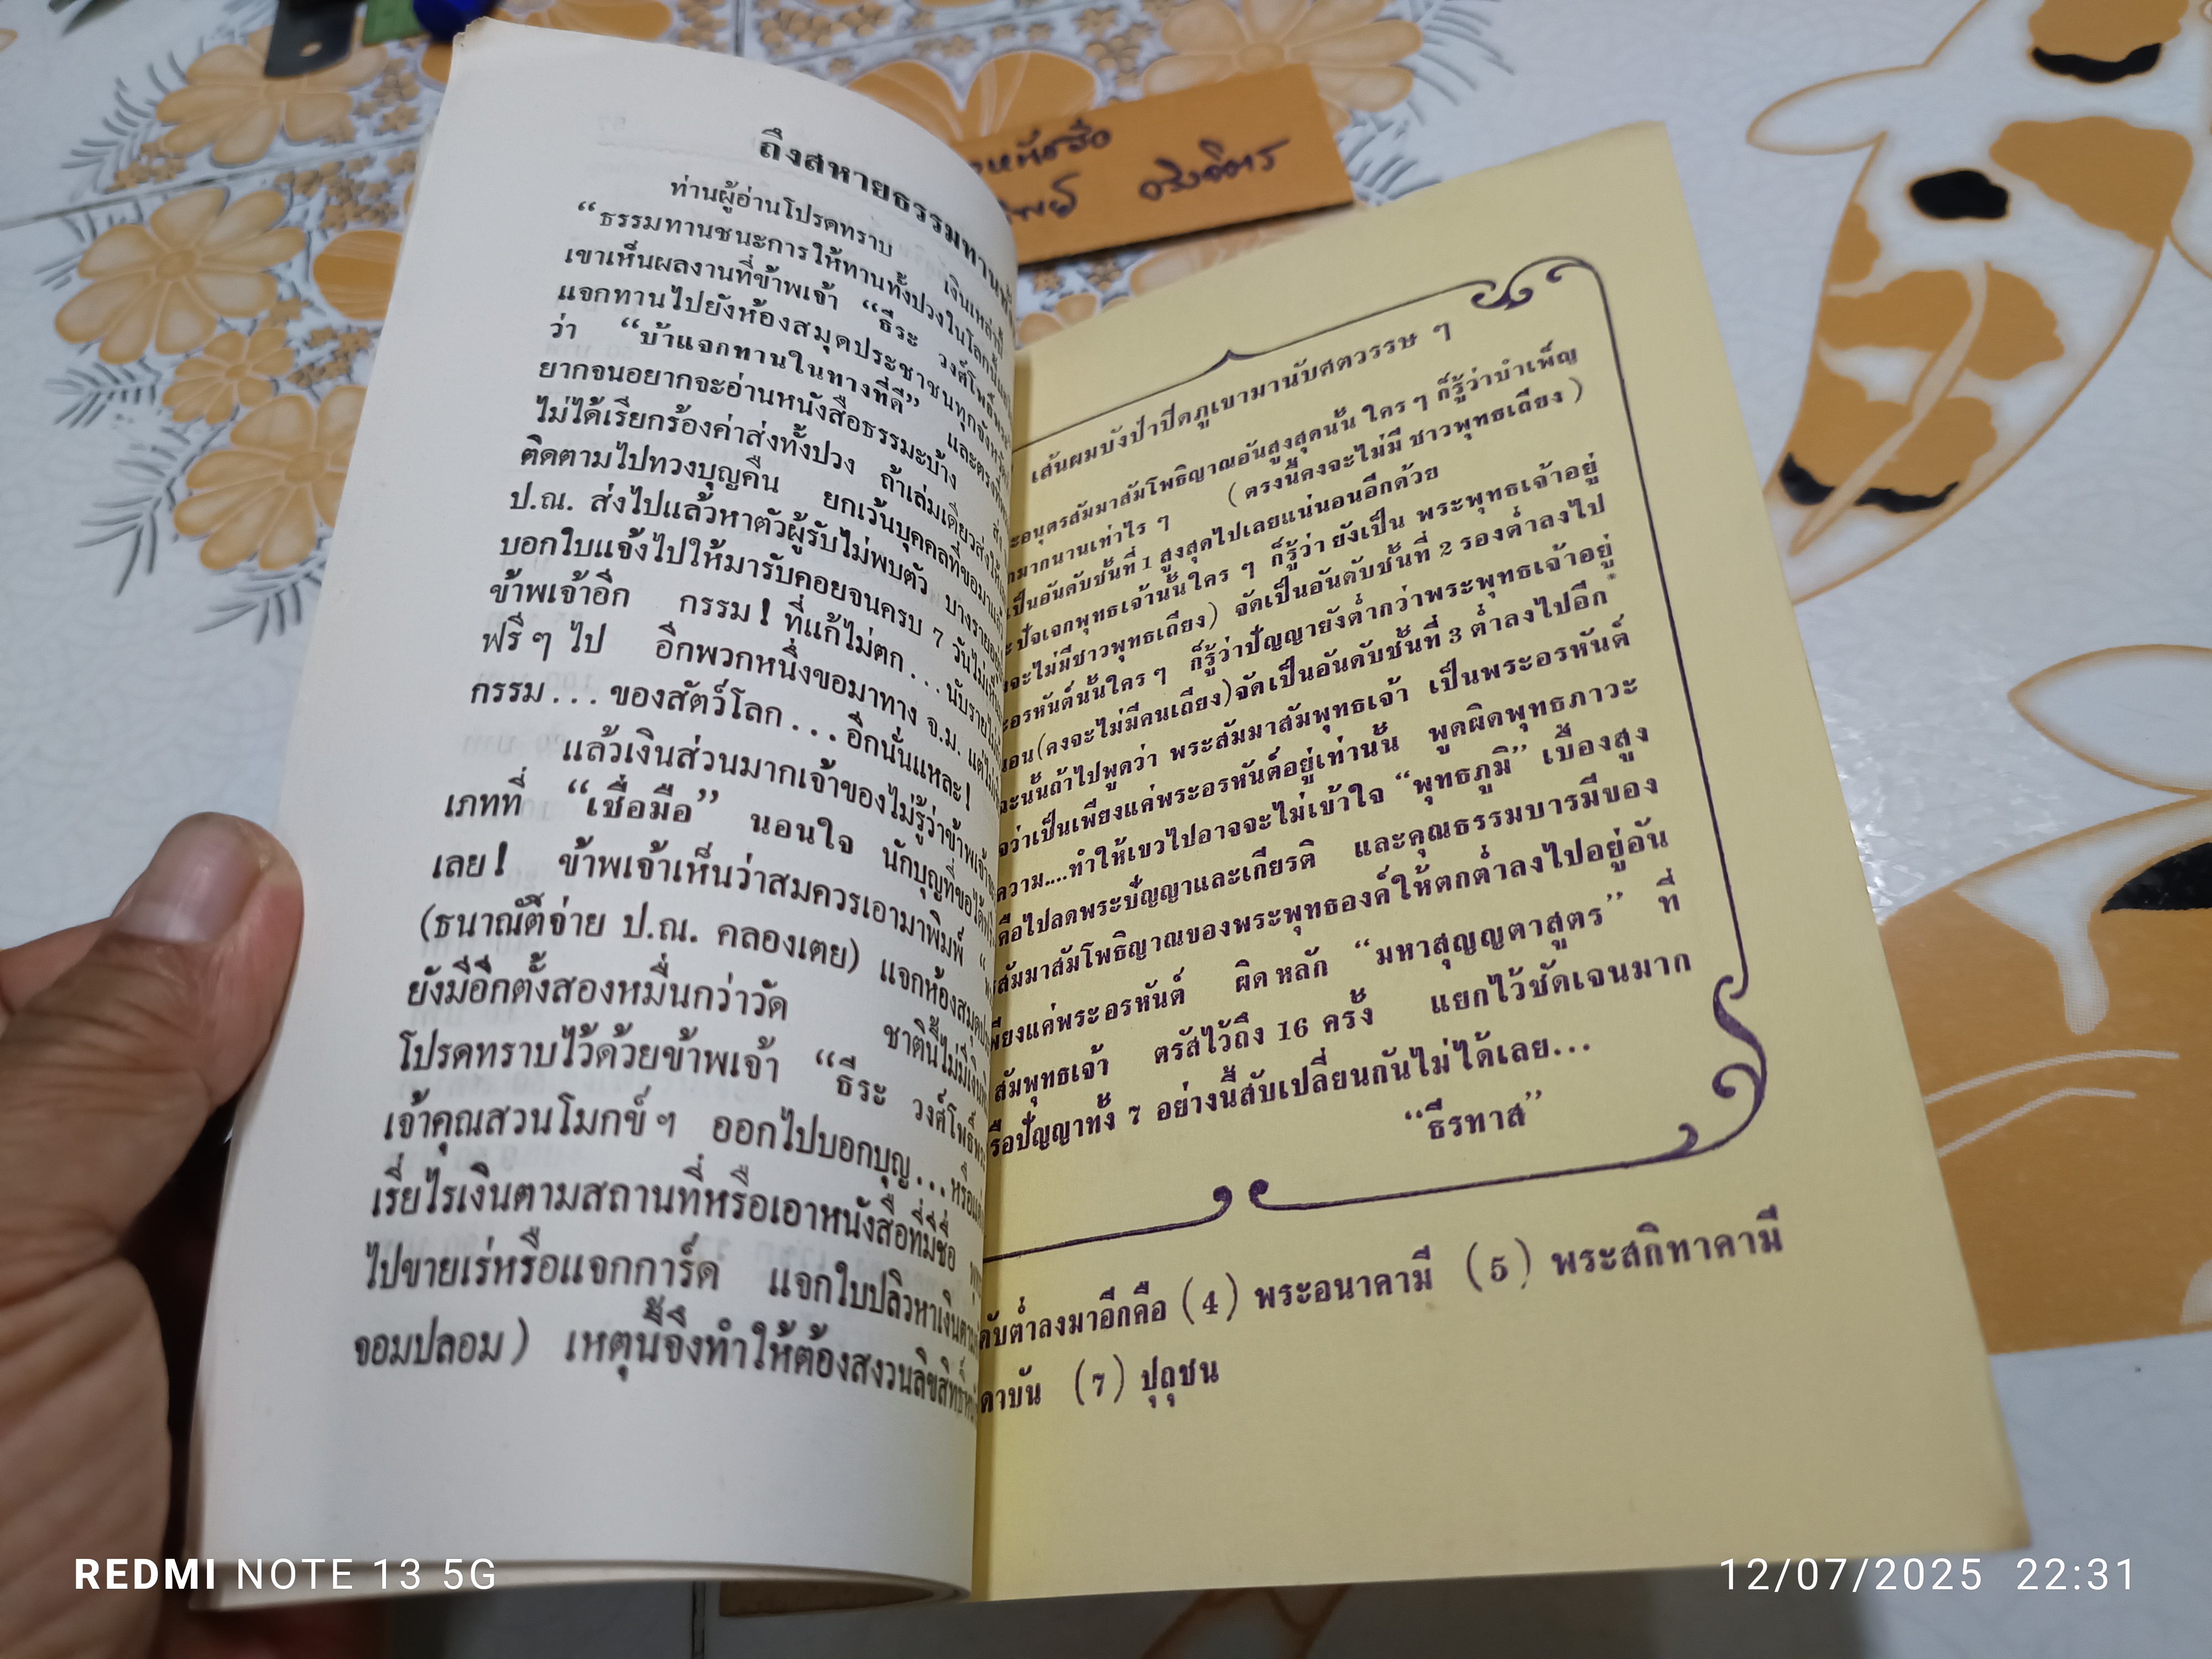 ถึงสหายธรรมทานทั้
ท่านผู้อ่านโปรดทราบ เงินเหล่านี้
“ธรรมทานชนะการให้ทานทั้งปวงในโลกนี้
เขาเห็นผลงานที่ข้าพเจ้า “ธีระ วงศ์โพธิ์พระ
แจกทานไปยังห้องสมุดประชาชนทุกจังหวัด
ว่า “บ้าแจกทานในทางที่ดี” และตรง
ยากจนอยากจะอ่านหนังสือธรรมะบ้าง
ไม่ได้เรียกร้องค่าส่งทั้งปวง ถ้าเล่มเดียวส่งให้
ติดตามไปทวงบุญคืน ยกเว้นบุคคลที่ขอมาแล้ว
ป.ณ. ส่งไปแล้วหาตัวผู้รับไม่พบตัว บางราย
บอกใบแจ้งไปให้มารับคอยจนครบ 7 วันไม่
ข้าพเจ้าอีก กรรม ! ที่แก้ไม่ตก... นับรายไม่
ฟรีๆ ไป อีกพวกหนึ่งขอมาทาง จ.ม. แต่ไม่
กรรม... ของสัตว์โลก... อีกนั่นแหละ!
แล้วเงินส่วนมากเจ้าของไม่รู้ว่าข้าพเจ้า
เภทที่ “เชื่อมือ” นอนใจ นักบุญที่ขอได้
เลย ! ข้าพเจ้าเห็นว่าสมควรเอามาพิมพ์ “
(ธนาณัติจ่าย ป.ณ. คลองเตย) แจกห้องสมุด
ยังมีอีกตั้งสองหมื่นกว่าวัด ชาตินี้ไม่มีเงิน
โปรดทราบไว้ด้วยข้าพเจ้า “ธีระ วงศ์โพธิ์พระ
เจ้าคุณสวนโมกข์ฯ ออกไปบอกบุญ... หรือ
เรี่ยไรเงินตามสถานที่หรือเอาหนังสือที่มีชื่อ
ไปขายเร่หรือแจกการ์ด แจกใบปลิวหาเงินตาม
จอมปลอม) เหตุนี้จึงทำให้ต้องสงวนลิขสิทธิ์
งหนังสือ
วริงจิตร
เส้นผมบังป่าปิดภูเขามานับศตวรรษ ๆ
ะอนุตรสัมมาสัมโพธิญาณอันสูงสุดนั้น ใครๆ ก็รู้ว่าบำเพ็ญ
มากนานเท่าไร ๆ (ตรงนี้คงจะไม่มี ชาวพุทธเถียง)
เป็นอันดับชั้นที่ 1 สูงสุดไปเลยแน่นอนอีกด้วย
ะปัจเจกพุทธเจ้านั้นใคร ๆ ก็รู้ว่า ยังเป็น พระพุทธเจ้าอยู่
จะไม่มีชาวพุทธเถียง) จัดเป็นอันดับชั้นที่ 2 รองต่ำลงไป
ะอรหันต์นั้นใครๆ ก็รู้ว่าปัญญายังต่ำกว่าพระพุทธเจ้าอยู่
นอน(คงจะไม่มีคนเถียง)จัดเป็นอันดับชั้นที่ 3 ต่ำลงไปอีก
ะนั้นถ้าไปพูดว่า พระสัมมาสัมพุทธเจ้า เป็นพระอรหันต์
ว่าเป็นเพียงแค่พระอรหันต์อยู่เท่านั้น พูดผิดพุทธภาวะ
ความ....ทำให้เขวไปอาจจะไม่เข้าใจ “พุทธภูมิ” เบื้องสูง
คือไปลดพระปัญญาและเกียรติ และคุณธรรมบารมีของ
สัมมาสัมโพธิญาณของพระพุทธองค์ให้ตกต่ำลงไปอยู่อัน
พียงแค่พระอรหันต์ ผิดหลัก “มหาสุญญตาสูตร” ที่
สัมพุทธเจ้า ตรัสไว้ถึง 16 ครั้ง แยกไว้ชัดเจนมาก
รือปัญญาทั้ง 7 อย่างนี้สับเปลี่ยนกันไม่ได้เลย...
“ธีรทาส”
ดับต่ำลงมาอีกคือ (4) พระอนาคามี (5) พระสกิทาคามี
ดาบัน (7) ปุถุชน
REDMI NOTE 13 5G
12/07/2025 22:31